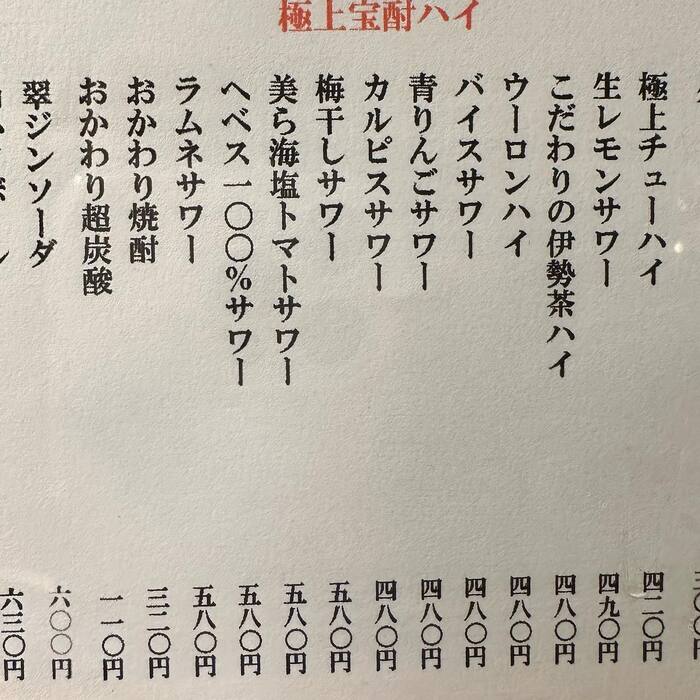 極上宝酎ハイ
極上チューハイ 四二〇円
生レモンサワー 四九〇円
こだわりの伊勢茶ハイ 四八〇円
ウーロンハイ 四八〇円
バイスサワー 四八〇円
青りんごサワー 四八〇円
カルピスサワー 四八〇円
梅干しサワー 五八〇円
美ら海塩トマトサワー 五八〇円
ヘベス一〇〇%サワー 五八〇円
ラムネサワー 五八〇円
おかわり焼酎 三二〇円
おかわり超炭酸 一一〇円
翠ジンソーダ 六〇〇円
六三〇円